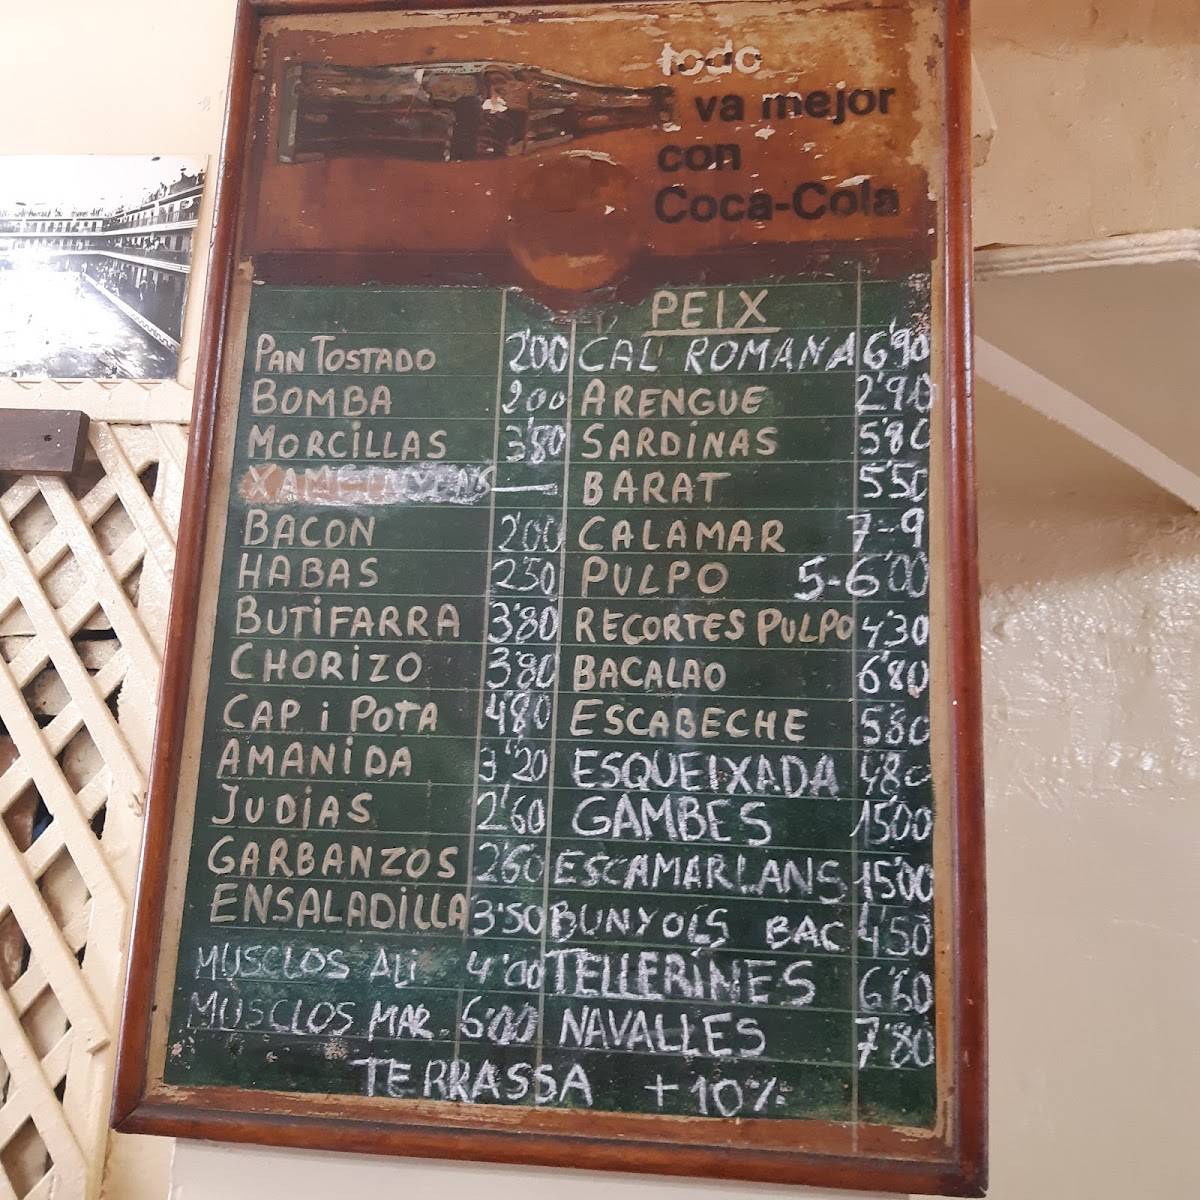 todo
va mejor
con
Coca-Cola
PEIX
PAN TOSTADO 2'00 CAL' ROMANA 6'90
BOMBA 200 ARENGUE 2'90
MORCILLAS 3'80 SARDINAS 5'80
— BARAT 5'50
BACON 2'00 CALAMAR 7-9
HABAS 250 PULPO 5-6'00
BUTIFARRA 3'80 RECORTES PULPO 4'30
CHORIZO 3'80 BACALAO 6'80
CAP i POTA 4'80 ESCABECHE 5'80
AMANIDA 3'20 ESQUEIXADA 4'80
JUDIAS 2'60 GAMBES 15'00
GARBANZOS 260 ESCAMARLANS 15'00
ENSALADILLA 3'50 BUNYOLS BAC 4'50
MUSCLOS ALi 4'00 TELLERINES 6'60
MUSCLOS MAR. 6'00 NAVALLES 7'80
TERRASSA +10%